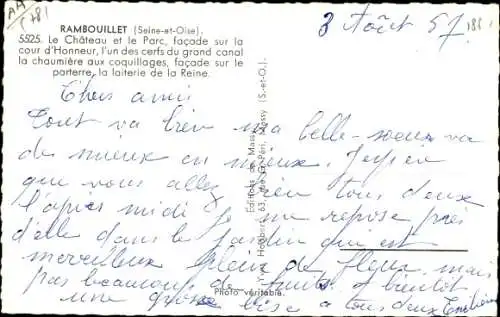 RAMBOUILLET (Seine-et-Oise).
5525. Le Château et le Parc, façade sur la
cour d'Honneur, l'un des cerfs du grand canal
la chaumière aux coquillages, façade sur le
parterre, la laiterie de la Reine.
3 Août 57
Chers amis
Tout va bien ma belle-soeur va
de mieux en mieux. J'espère
que vous allez bien tous deux
l'après midi je me repose près
d'elle dans le jardin qui est
merveilleux plein de fleurs, mais
pas beaucoup de fruits. A bientôt
une grosse bise à tous deux
Editions de Massy
Photo véritable.